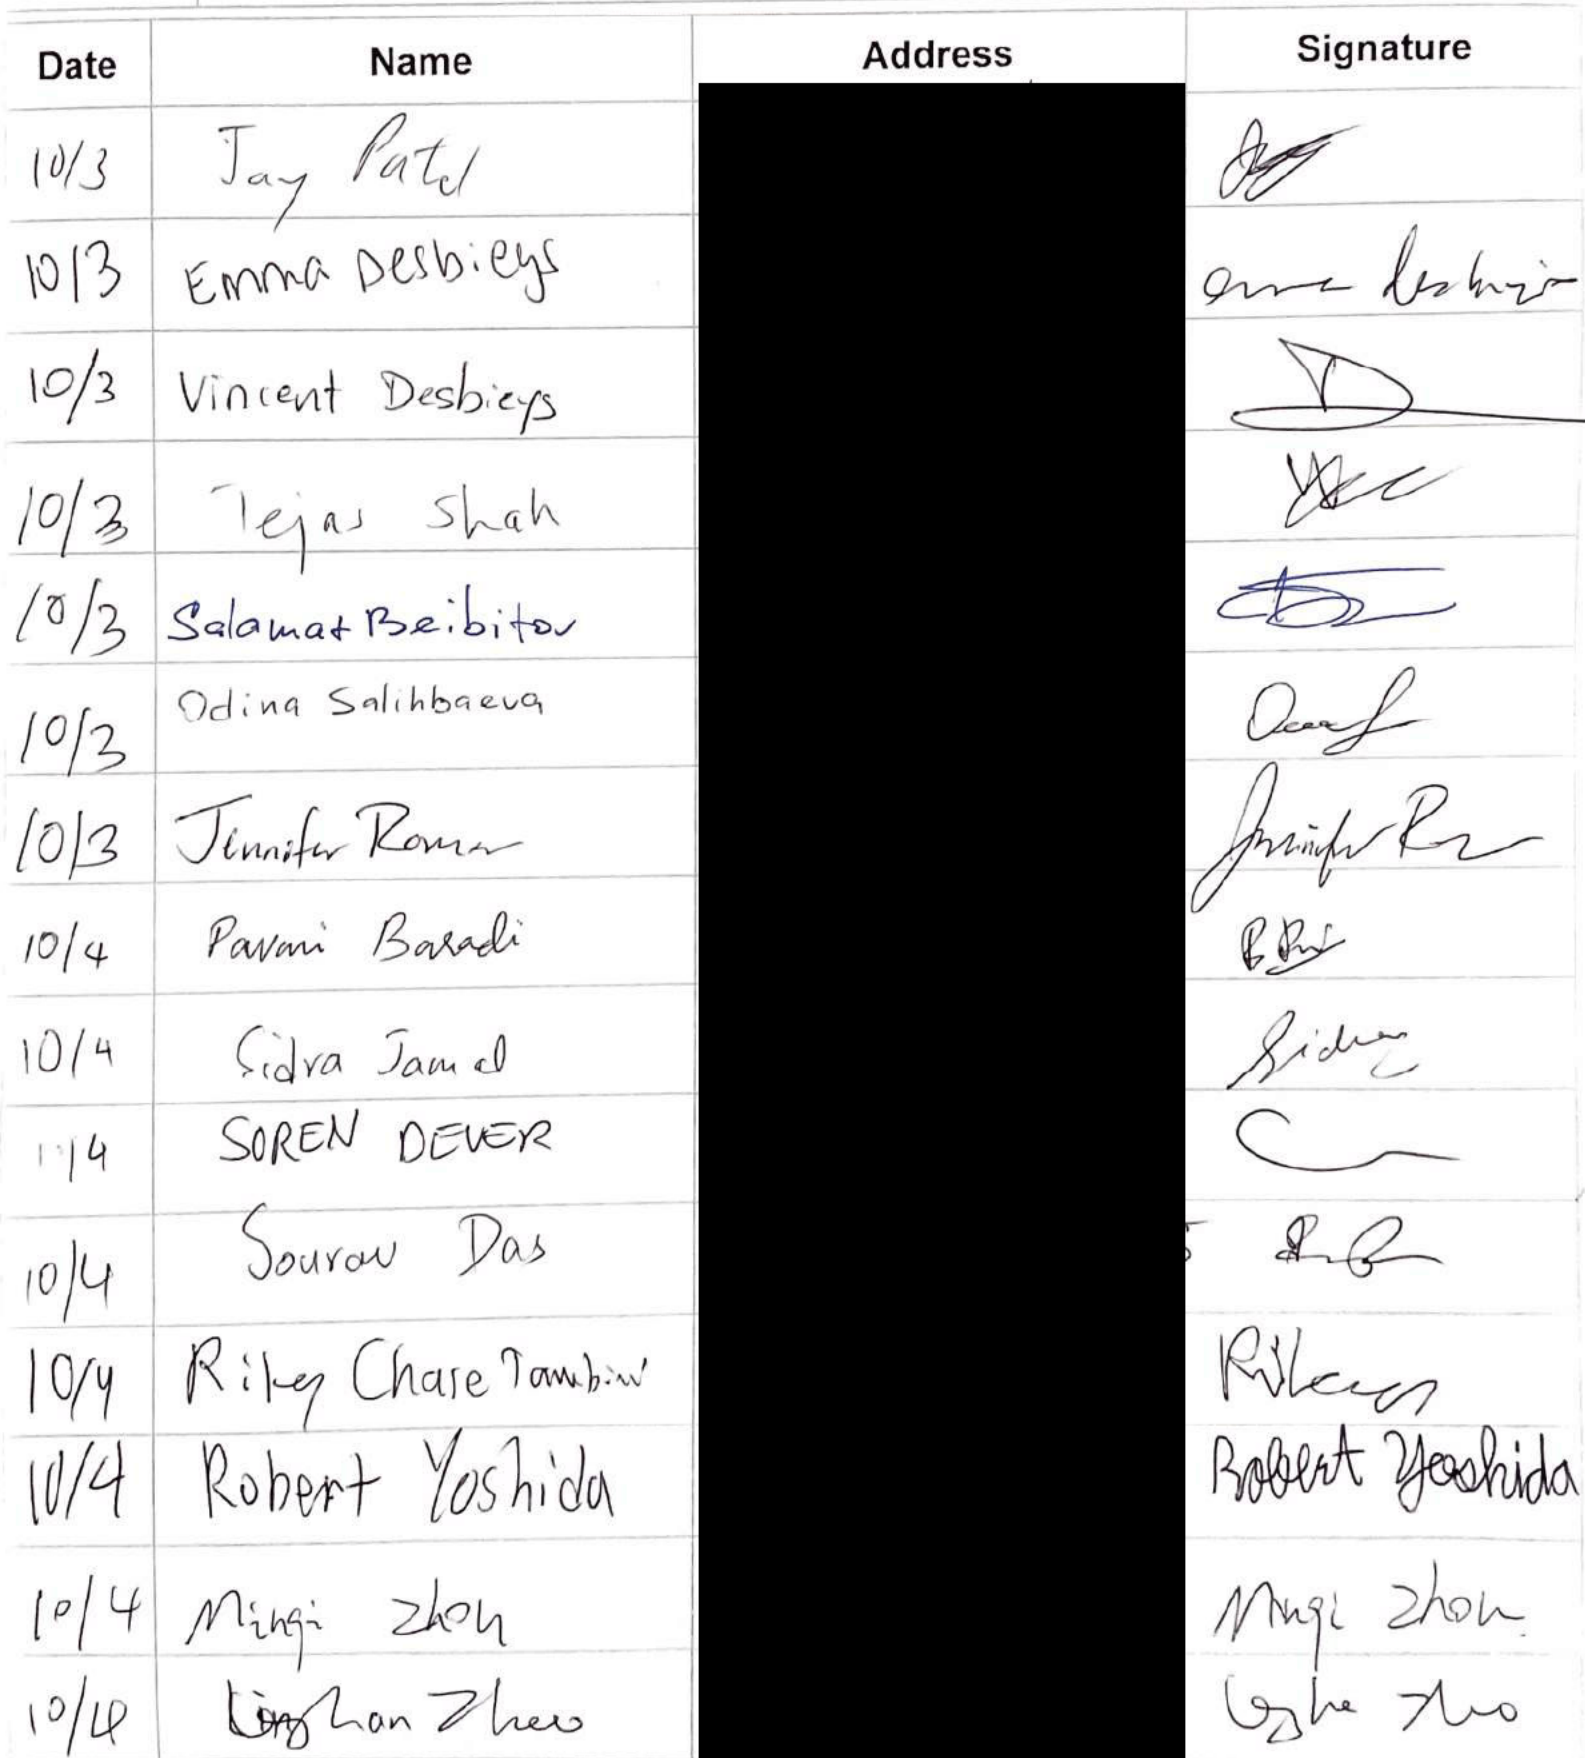 Date Name Address Signature
10/3 Jay Patel
10/3 Emma Desbieys
10/3 Vincent Desbieys
10/3 Tejas Shah
10/3 Salamat Beibitov
10/3 Odina Salihbaeva
10/3 Jennifer Roman Jennifer R
10/4 Pavani Baradi
10/4 Sidra Jamal Sidra
/4 SOREN DEVER
10/4 Sourav Das
10/4 Riley Chase Tambini Riley
10/4 Robert Yoshida Robert Yoshida
10/4 Mingi Zhou Mingi Zhou
10/4 Zhao